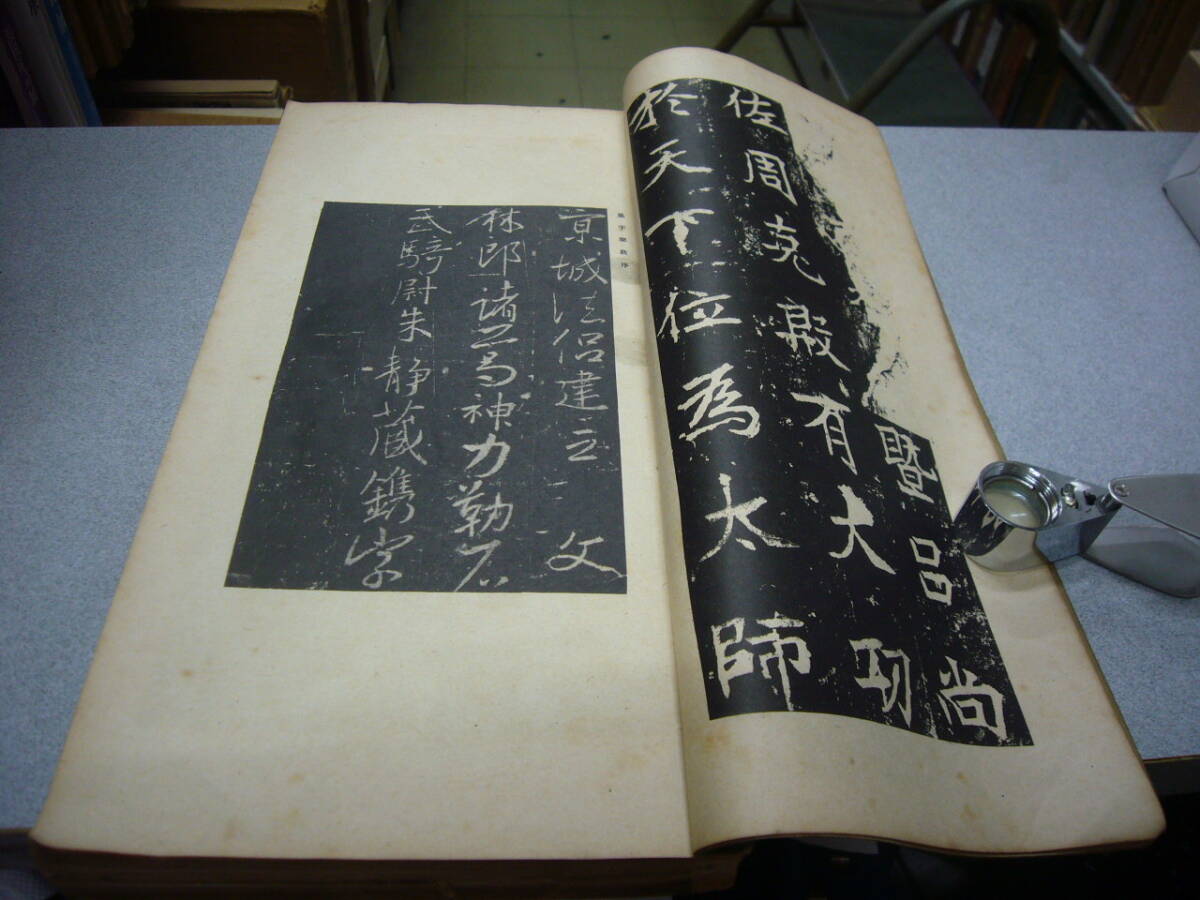 暨呂尚
佐周克殷有大功
於天下位為太師
集字聖教序
京城法侶建立 文
林郎諸葛神力勒石
武騎尉朱静藏鐫字